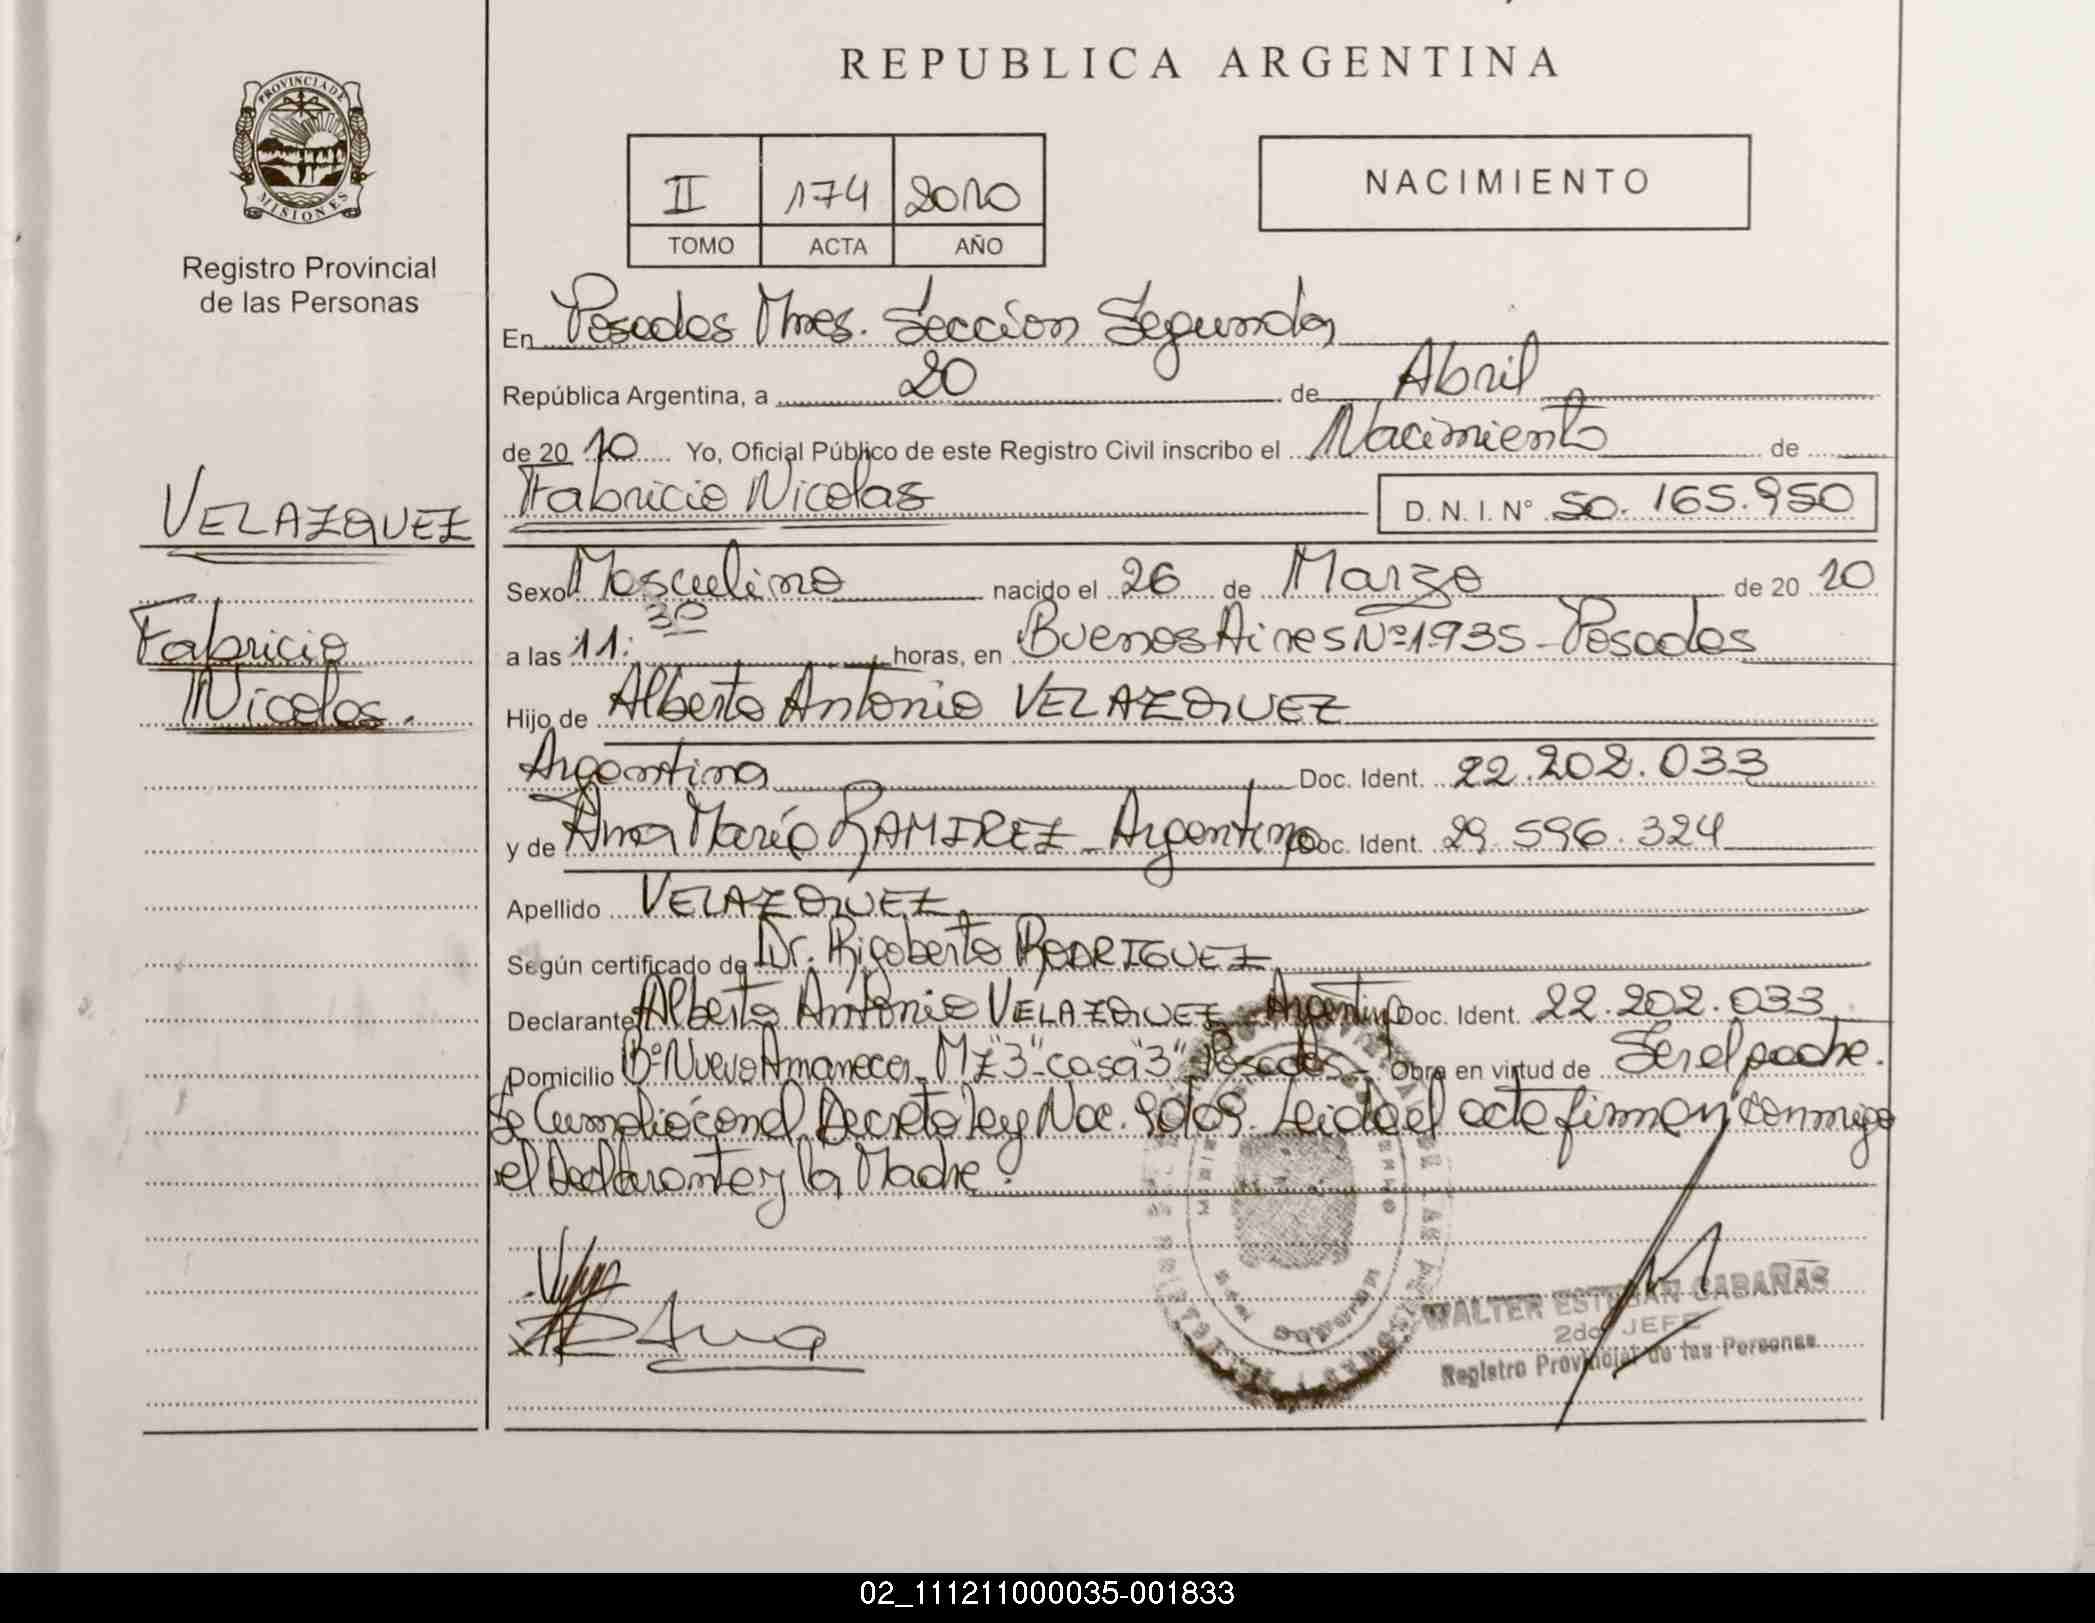 REPUBLICA ARGENTINA
PROVINCIA DE
MISIONES
Registro Provincial
de las Personas
II 174 2010
TOMO ACTA AÑO
NACIMIENTO
En Posadas Mnes. Sección Segunda
República Argentina, a 20 de Abril
de 2010 Yo, Oficial Público de este Registro Civil inscribo el Nacimiento de
Fabricio Nicolas D. N. I. N° 50.165.950
VELAZQUEZ
Fabricio
Nicolas.
Sexo Masculino nacido el 26 de Marzo de 2010
a las 11:30 horas, en Buenos Aires Nº 1935 - Posadas
Hijo de Alberto Antonio VELAZQUEZ
Argentina Doc. Ident. 22.202.033
y de Ana María RAMIREZ - Argentina Doc. Ident. 29.596.324
Apellido VELAZQUEZ
Según certificado de Dr. Rigoberto RODRIGUEZ
Declarante Alberto Antonio VELAZQUEZ - Argentina Doc. Ident. 22.202.033
Domicilio Bº Nuevo Amanecer - Mz "3" - casa "3" Posadas - Obra en virtud de Ser el padre.
Se Cumplió con el Decreto ley Nac. Leida el acta firman conmigo
el Declarante y la Madre.
Ana
WALTER ESTEBAN CABAÑAS
2do JEFE
Registro Provincial de las Personas
02_111211000035-001833